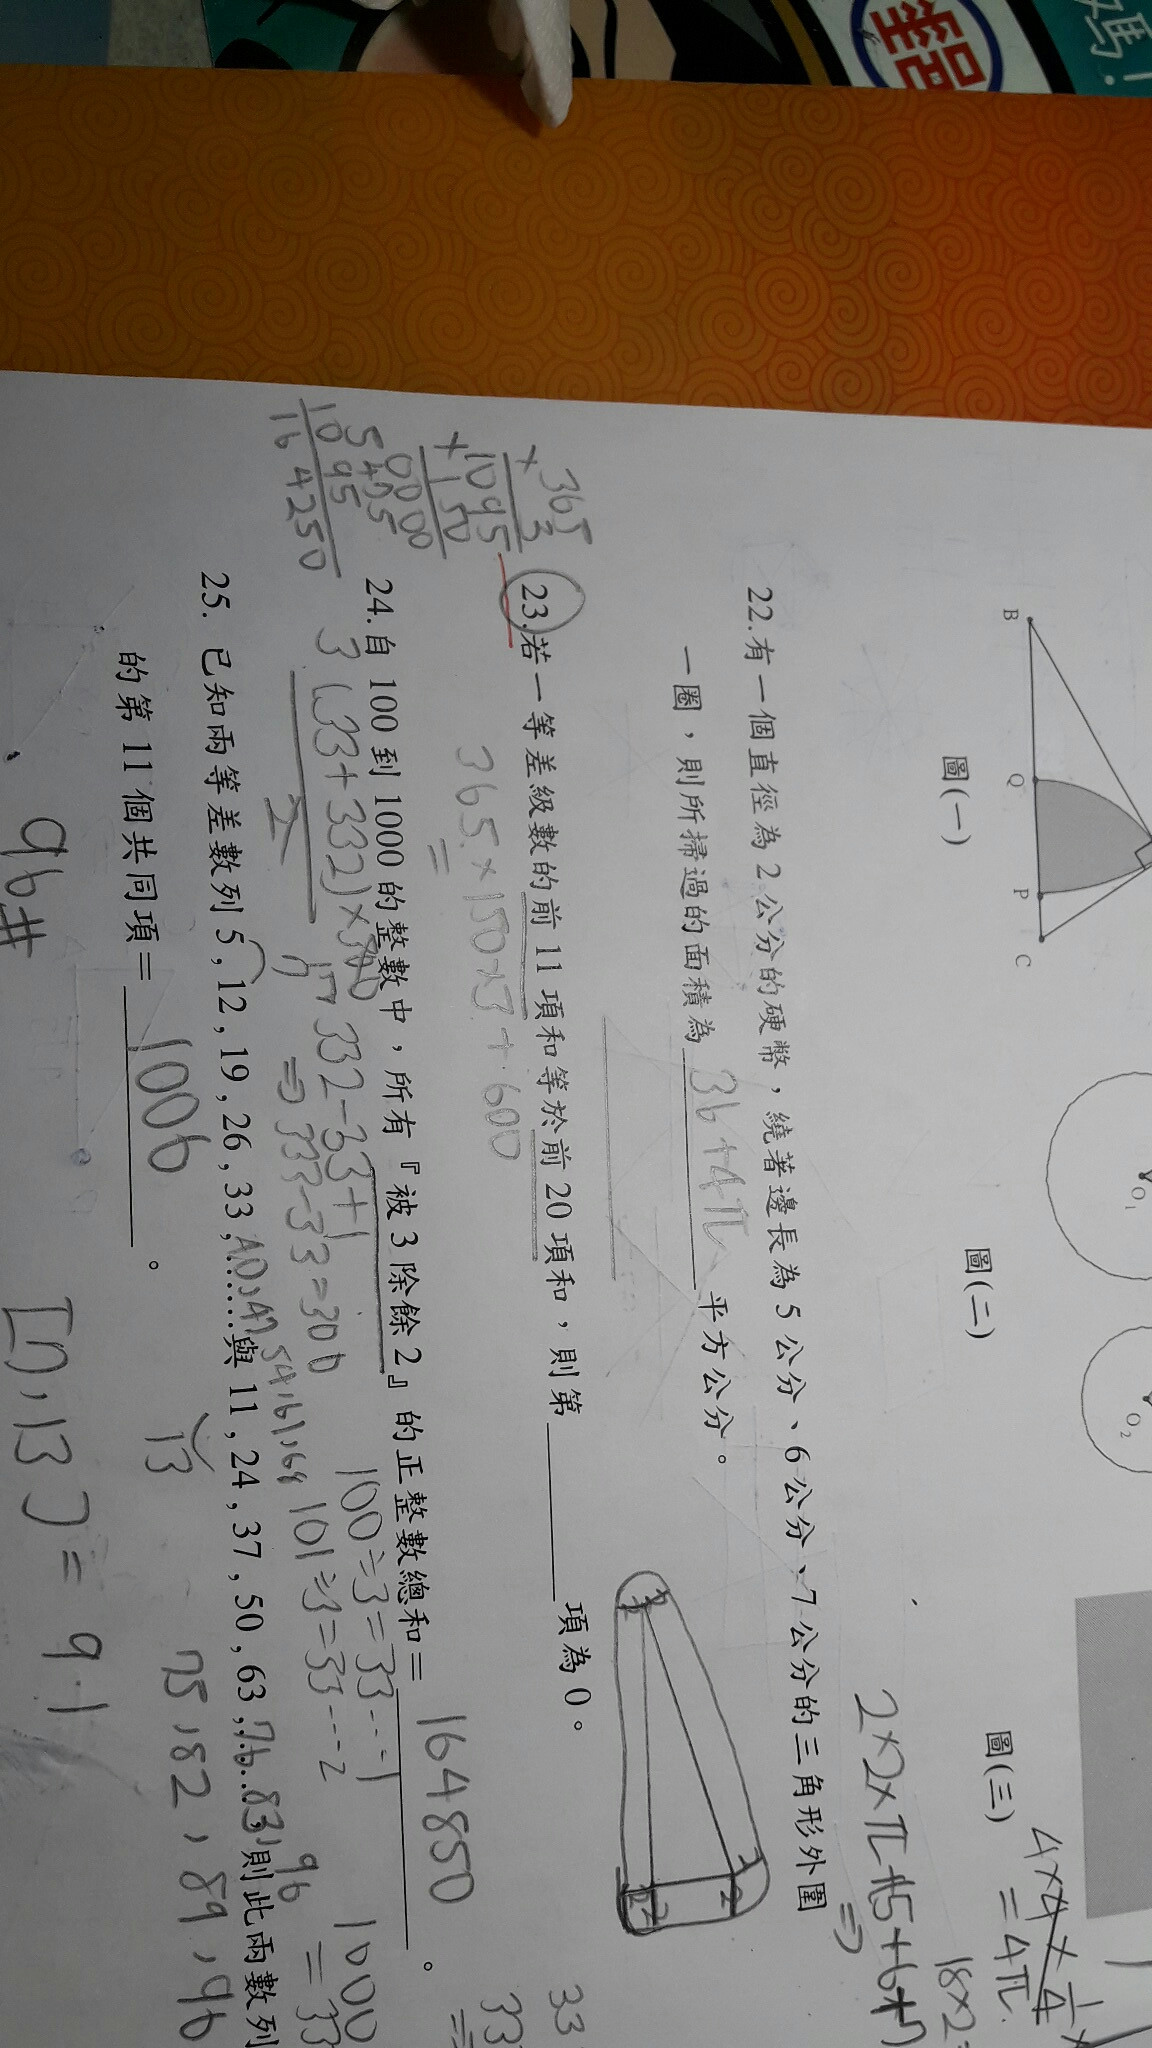 嗎!
B
Q
P
C
O₁
O₂
圖(一)
圖(二)
圖(三)
4×4×1/4
=4π
18×2
2×2×π+(5+6+7)
22.有一個直徑為2公分的硬幣,繞著邊長為5公分、6公分、7公分的三角形外圍
一圈,則所掃過的面積為36+4π平方公分。
2
2
2
23.若一等差級數的前11項和等於前20項和,則第______項為0。
365×150×3+600
=
365
×3
1095
×150
0000
5475
1095
164250
24.自100到1000的整數中,所有『被3除餘2』的正整數總和=164850。
3(33+332)×300
2
332-33+1
⇒333-33=300
100÷3=33…1
101÷3=33…2
1000
=33
33
25. 已知兩等差數列5,12,19,26,33,40,47,……與11,24,37,50,63,76,…則此兩數列
54,61,68
75,82,89,96
7
13
96
的第11個共同項=1006。
96#
[7,13]=91